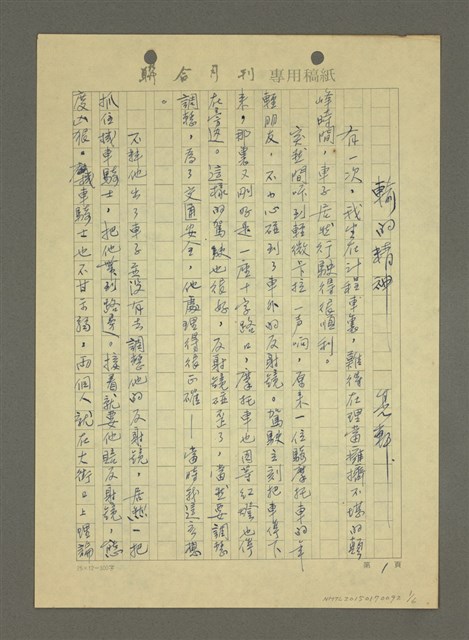 聯合月刊 專用稿紙
輸的精神
有一次，我坐在計程車裏，難得在理當擁擠不堪的顛
峰時間，車子居然行駛得很順利。
突然間聽到輕微卡拉一声响，原來一位騎摩托車的年
輕朋友，不小心碰到了車外的反射鏡。駕駛立刻把車停下
來，那裏又剛好是一座十字路口，摩托車也因等紅燈也停
在旁邊。這樣的駕駛也很好，反射鏡碰歪了，當然要調整
調整，為了交通安全，他處理得很正確——當時我這麼想
。
不料他出了車子並沒有去調整他的反射鏡，居然一把
抓住機車騎士，把他叢到路邊。接着就要他賠反射鏡，態
度凶狠。機車騎士也不甘示弱，兩個人就在大街口上理論
第 1 頁